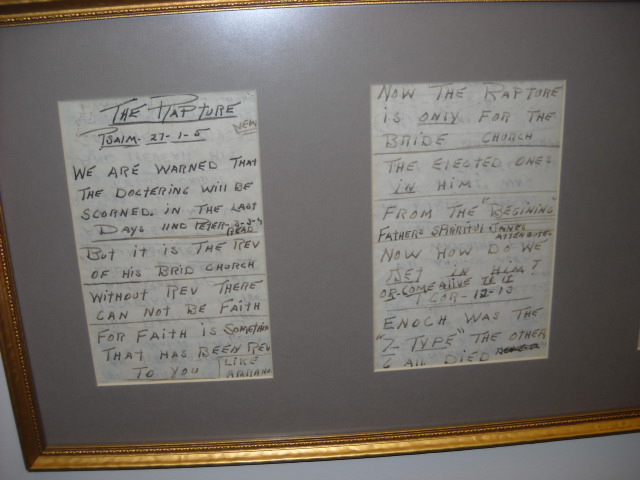 THE RAPTURE
PSALM- 27-1-5
NEW
WE ARE WARNED THAT
THE DOCTERING WILL BE
SCORNED. IN THE LAST
DAYS IIND PETER- 3-3-4
READ
BUT IT IS THE REV
OF HIS BRID CHURCH
WITHOUT REV THERE
CAN NOT BE FAITH
FOR FAITH IS SOMETHIN
THAT HAS BEEN REV
TO YOU LIKE
ABRAHA
NOW THE RAPTURE
IS ONLY FOR THE
BRIDE CHURCH
THE ELECTED ONES
IN HIM
FROM THE "BEGINING"
FATHERS SPARITUL
NOW HOW DO WE
GET IN HIM?
OR-COME ALIVE TO IT
1 COR- 12-13
ENOCH WAS THE
"7-TYPE" THE OTHER
6 ALL DIED